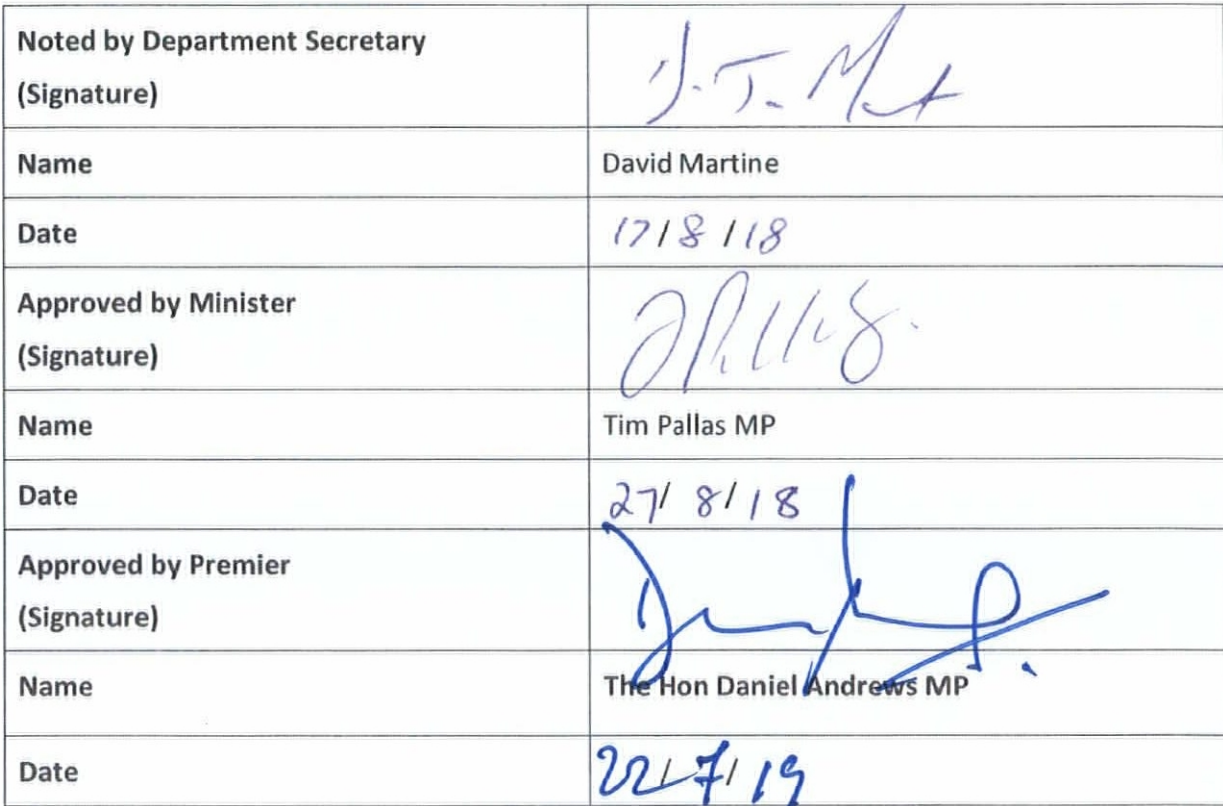 Noted by Department Secretary
(Signature)
Name
David Martine
Date
17/8/18
Approved by Minister
(Signature)
Name
Tim Pallas MP
Date
27/8/18
Approved by Premier
(Signature)
Name
The Hon Daniel Andrews MP
Date
22/7/19